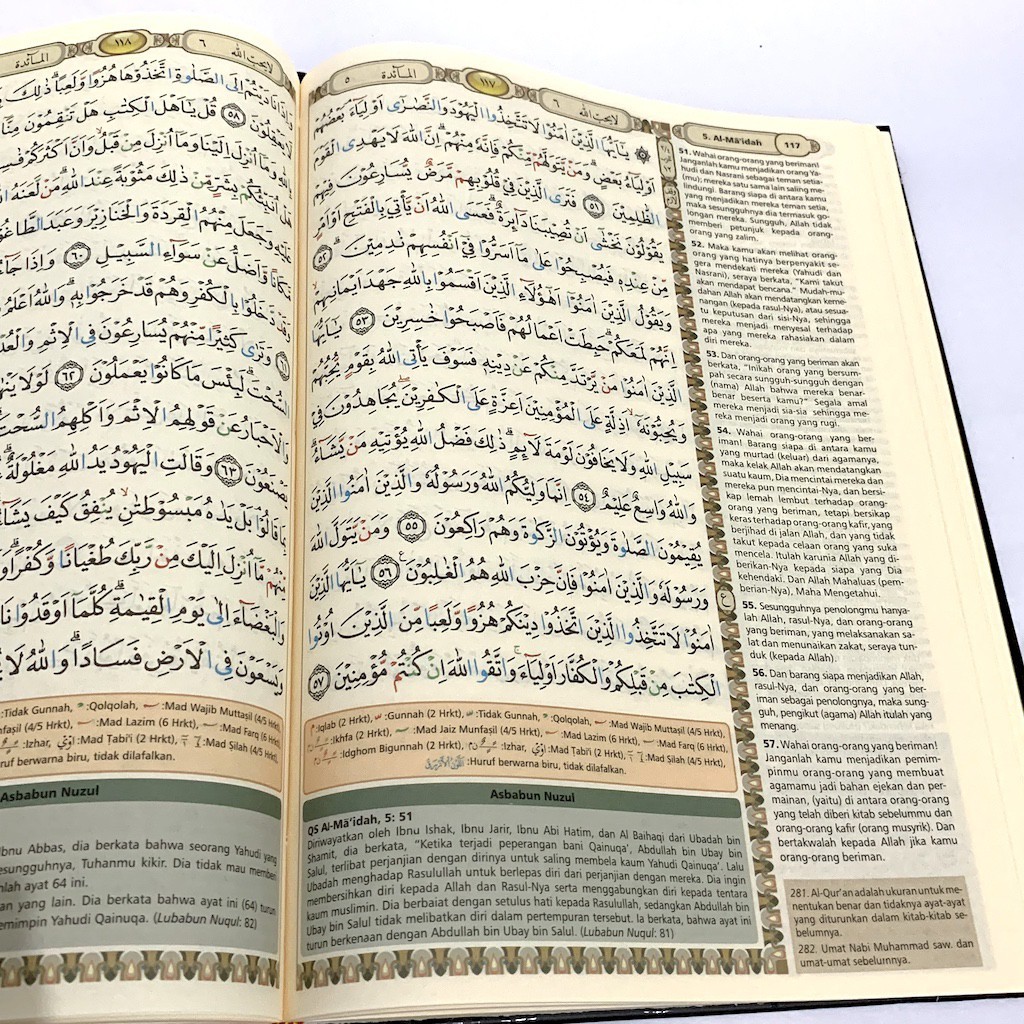 لايحبّ الله ٦
١١٧
المائدة ٥
۞ يٰٓاَيُّهَا الَّذِيْنَ اٰمَنُوْا لَا تَتَّخِذُوا الْيَهُوْدَ وَالنَّصٰرٰٓى اَوْلِيَاۤءَ ۘ بَعْضُهُمْ
اَوْلِيَاۤءُ بَعْضٍۗ وَمَنْ يَّتَوَلَّهُمْ مِّنْكُمْ فَاِنَّهٗ مِنْهُمْ ۗ اِنَّ اللّٰهَ لَا يَهْدِى الْقَوْمَ
الظّٰلِمِيْنَ ٥١ فَتَرَى الَّذِيْنَ فِيْ قُلُوْبِهِمْ مَّرَضٌ يُّسَارِعُوْنَ فِيْهِمْ
يَقُوْلُوْنَ نَخْشٰٓى اَنْ تُصِيْبَنَا دَاۤىِٕرَةٌ ۗ فَعَسَى اللّٰهُ اَنْ يَّأْتِيَ بِالْفَتْحِ اَوْ اَمْرٍ
مِّنْ عِنْدِهٖ فَيُصْبِحُوْا عَلٰى مَآ اَسَرُّوْا فِيْٓ اَنْفُسِهِمْ نٰدِمِيْنَ ٥٢
وَيَقُوْلُ الَّذِيْنَ اٰمَنُوْٓا اَهٰٓؤُلَاۤءِ الَّذِيْنَ اَقْسَمُوْا بِاللّٰهِ جَهْدَ اَيْمَانِهِمْ ۙ
اِنَّهُمْ لَمَعَكُمْ ۗ حَبِطَتْ اَعْمَالُهُمْ فَاَصْبَحُوْا خٰسِرِيْنَ ٥٣ يٰٓاَيُّهَا
الَّذِيْنَ اٰمَنُوْا مَنْ يَّرْتَدَّ مِنْكُمْ عَنْ دِيْنِهٖ فَسَوْفَ يَأْتِى اللّٰهُ بِقَوْمٍ يُّحِبُّهُمْ
وَيُحِبُّوْنَهٗٓ ۙ اَذِلَّةٍ عَلَى الْمُؤْمِنِيْنَ اَعِزَّةٍ عَلَى الْكٰفِرِيْنَ ۖ يُجَاهِدُوْنَ فِيْ
سَبِيْلِ اللّٰهِ وَلَا يَخَافُوْنَ لَوْمَةَ لَاۤىِٕمٍ ۗ ذٰلِكَ فَضْلُ اللّٰهِ يُؤْتِيْهِ مَنْ يَّشَاۤءُ ۗ
وَاللّٰهُ وَاسِعٌ عَلِيْمٌ ٥٤ اِنَّمَا وَلِيُّكُمُ اللّٰهُ وَرَسُوْلُهٗ وَالَّذِيْنَ اٰمَنُوا الَّذِيْنَ
يُقِيْمُوْنَ الصَّلٰوةَ وَيُؤْتُوْنَ الزَّكٰوةَ وَهُمْ رَاكِعُوْنَ ٥٥ وَمَنْ يَّتَوَلَّ اللّٰهَ
وَرَسُوْلَهٗ وَالَّذِيْنَ اٰمَنُوْا فَاِنَّ حِزْبَ اللّٰهِ هُمُ الْغٰلِبُوْنَ ٥٦ يٰٓاَيُّهَا الَّذِيْنَ
اٰمَنُوْا لَا تَتَّخِذُوا الَّذِيْنَ اتَّخَذُوْا دِيْنَكُمْ هُزُوًا وَّلَعِبًا مِّنَ الَّذِيْنَ اُوْتُوا
الْكِتٰبَ مِنْ قَبْلِكُمْ وَالْكُفَّارَ اَوْلِيَاۤءَ ۚ وَاتَّقُوا اللّٰهَ اِنْ كُنْتُمْ مُّؤْمِنِيْنَ ٥٧
:Iqlab (2 Hrkt), :Gunnah (2 Hrkt), :Tidak Gunnah, :Qolqolah, :Mad Wajib Muttaṣil (4/5 Hrkt)
:Ikhfa (2 Hrkt), :Mad Jaiz Munfaṣil (4/5 Hrkt), :Mad Lazim (6 Hrkt), :Mad Farq (6 Hrkt),
:Idghom Bigunnah (2 Hrkt), :Izhar, :Mad Ṭabi'i (2 Hrkt), :Mad Ṣilah (4/5 Hrkt),
:Huruf berwarna biru, tidak dilafalkan.
Asbabun Nuzul
QS Al-Mā'idah, 5: 51
Diriwayatkan oleh Ibnu Ishak, Ibnu Jarir, Ibnu Abi Hatim, dan Al Baihaqi dari Ubadah bin
Shamit, dia berkata, "Ketika terjadi peperangan bani Qainuqa', Abdullah bin Ubay bin
Salul, terlibat perjanjian dengan dirinya untuk saling membela kaum Yahudi Qainuqa'. Lalu
Ubadah menghadap Rasulullah untuk berlepas diri dari perjanjian dengan mereka. Dia ingin
membersihkan diri kepada Allah dan Rasul-Nya serta menggabungkan diri kepada tentara
kaum muslimin. Dia berbaiat dengan setulus hati kepada Rasulullah, sedangkan Abdullah bin
Ubay bin Salul tidak melibatkan diri dalam pertempuran tersebut. Ia berkata, bahwa ayat ini
turun berkenaan dengan Abdullah bin Ubay bin Salul. (Lubabun Nuqul: 81)
5. Al-Mā'idah 117
51. Wahai orang-orang yang beriman!
Janganlah kamu menjadikan orang Ya-
hudi dan Nasrani sebagai teman setia-
(mu); mereka satu sama lain saling me-
lindungi. Barang siapa di antara kamu
yang menjadikan mereka teman setia,
maka sesungguhnya dia termasuk go-
longan mereka. Sungguh, Allah tidak
memberi petunjuk kepada orang-
orang yang zalim.
52. Maka kamu akan melihat orang-
orang yang hatinya berpenyakit se-
gera mendekati mereka (Yahudi dan
Nasrani), seraya berkata, "Kami takut
akan mendapat bencana." Mudah-mu-
dahan Allah akan mendatangkan keme-
nangan (kepada rasul-Nya), atau sesua-
tu keputusan dari sisi-Nya, sehingga
mereka menjadi menyesal terhadap
apa yang mereka rahasiakan dalam
diri mereka.
53. Dan orang-orang yang beriman akan
berkata, "Inikah orang yang bersum-
pah secara sungguh-sungguh dengan
(nama) Allah bahwa mereka benar-
benar beserta kamu?" Segala amal
mereka menjadi sia-sia sehingga me-
reka menjadi orang yang rugi.
54. Wahai orang-orang yang ber-
iman! Barang siapa di antara kamu
yang murtad (keluar) dari agamanya,
maka kelak Allah akan mendatangkan
suatu kaum, Dia mencintai mereka dan
mereka pun mencintai-Nya, dan bersi-
kap lemah lembut terhadap orang-
orang yang beriman, tetapi bersikap
keras terhadap orang-orang kafir, yang
berjihad di jalan Allah, dan yang tidak
takut kepada celaan orang yang suka
mencela. Itulah karunia Allah yang di-
berikan-Nya kepada siapa yang Dia
kehendaki. Dan Allah Mahaluas (pem-
berian-Nya), Maha Mengetahui.
55. Sesungguhnya penolongmu hanya-
lah Allah, rasul-Nya, dan orang-orang
yang beriman, yang melaksanakan sa-
lat dan menunaikan zakat, seraya tun-
duk (kepada Allah).
56. Dan barang siapa menjadikan Allah,
rasul-Nya, dan orang-orang yang ber-
iman sebagai penolongnya, maka sung-
guh, pengikut (agama) Allah itulah yang
menang.
57. Wahai orang-orang yang beriman!
Janganlah kamu menjadikan pemim-
pinmu orang-orang yang membuat
agamamu jadi bahan ejekan dan per-
mainan, (yaitu) di antara orang-orang
yang telah diberi kitab sebelummu dan
orang-orang kafir (orang musyrik). Dan
bertakwalah kepada Allah jika kamu
orang-orang beriman.
281. Al-Qur'an adalah ukuran untuk me-
nentukan benar dan tidaknya ayat-ayat
yang diturunkan dalam kitab-kitab se-
belumnya.
282. Umat Nabi Muhammad saw. dan
umat-umat sebelumnya.
لايحبّ الله ٦
١١٨
المائدة
وَاِذَا نَادَيْتُمْ اِلَى الصَّلٰوةِ اتَّخَذُوْهَا هُزُوًا وَّلَعِبًا ۗ ذٰلِكَ
يَعْقِلُوْنَ ٥٨ قُلْ يٰٓاَهْلَ الْكِتٰبِ هَلْ تَنْقِمُوْنَ مِنَّآ
بِاللّٰهِ وَمَآ اُنْزِلَ اِلَيْنَا وَمَآ اُنْزِلَ مِنْ قَبْلُ ۙ وَاَنَّ اَكْثَرَكُمْ
هَلْ اُنَبِّئُكُمْ بِشَرٍّ مِّنْ ذٰلِكَ مَثُوْبَةً عِنْدَ اللّٰهِ ۗ مَنْ لَّعَنَهُ
عَلَيْهِ وَجَعَلَ مِنْهُمُ الْقِرَدَةَ وَالْخَنَازِيْرَ وَعَبَدَ
مَّكَانًا وَّاَضَلُّ عَنْ سَوَاۤءِ السَّبِيْلِ ٦٠ وَاِذَا
وَقَدْ دَّخَلُوْا بِالْكُفْرِ وَهُمْ قَدْ خَرَجُوْا بِهٖ ۗ وَاللّٰهُ اَعْلَمُ
٦١ وَتَرٰى كَثِيْرًا مِّنْهُمْ يُسَارِعُوْنَ فِى الْاِثْمِ
السُّحْتَ ۗ لَبِئْسَ مَا كَانُوْا يَعْمَلُوْنَ ٦٢ لَوْلَا
وَالْاَحْبَارُ عَنْ قَوْلِهِمُ الْاِثْمَ وَاَكْلِهِمُ السُّحْتَ
يَصْنَعُوْنَ ٦٣ وَقَالَتِ الْيَهُوْدُ يَدُ اللّٰهِ مَغْلُوْلَةٌ
بِمَا قَالُوْا ۘ بَلْ يَدٰهُ مَبْسُوْطَتٰنِ ۙ يُنْفِقُ كَيْفَ يَشَاۤءُ
مِّنْهُمْ مَّآ اُنْزِلَ اِلَيْكَ مِنْ رَّبِّكَ طُغْيَانًا وَّكُفْرًا
وَالْبَغْضَاۤءَ اِلٰى يَوْمِ الْقِيٰمَةِ ۗ كُلَّمَآ اَوْقَدُوْا
وَيَسْعَوْنَ فِى الْاَرْضِ فَسَادًا ۗ وَاللّٰهُ لَا
:Tidak Gunnah, :Qolqolah, :Mad Wajib Muttaṣil (4/5 Hrkt)
(4/5 Hrkt), :Mad Lazim (6 Hrkt), :Mad Farq (6 Hrkt),
:Izhar, :Mad Ṭabi'i (2 Hrkt), :Mad Ṣilah (4/5 Hrkt),
berwarna biru, tidak dilafalkan.
Asbabun Nuzul
Ibnu Abbas, dia berkata bahwa seorang Yahudi yang
sesungguhnya, Tuhanmu kikir. Dia tidak mau memberi
ayat 64 ini.
yang lain. Dia berkata bahwa ayat ini (64) turun
Yahudi Qainuqa. (Lubabun Nuqul: 82)